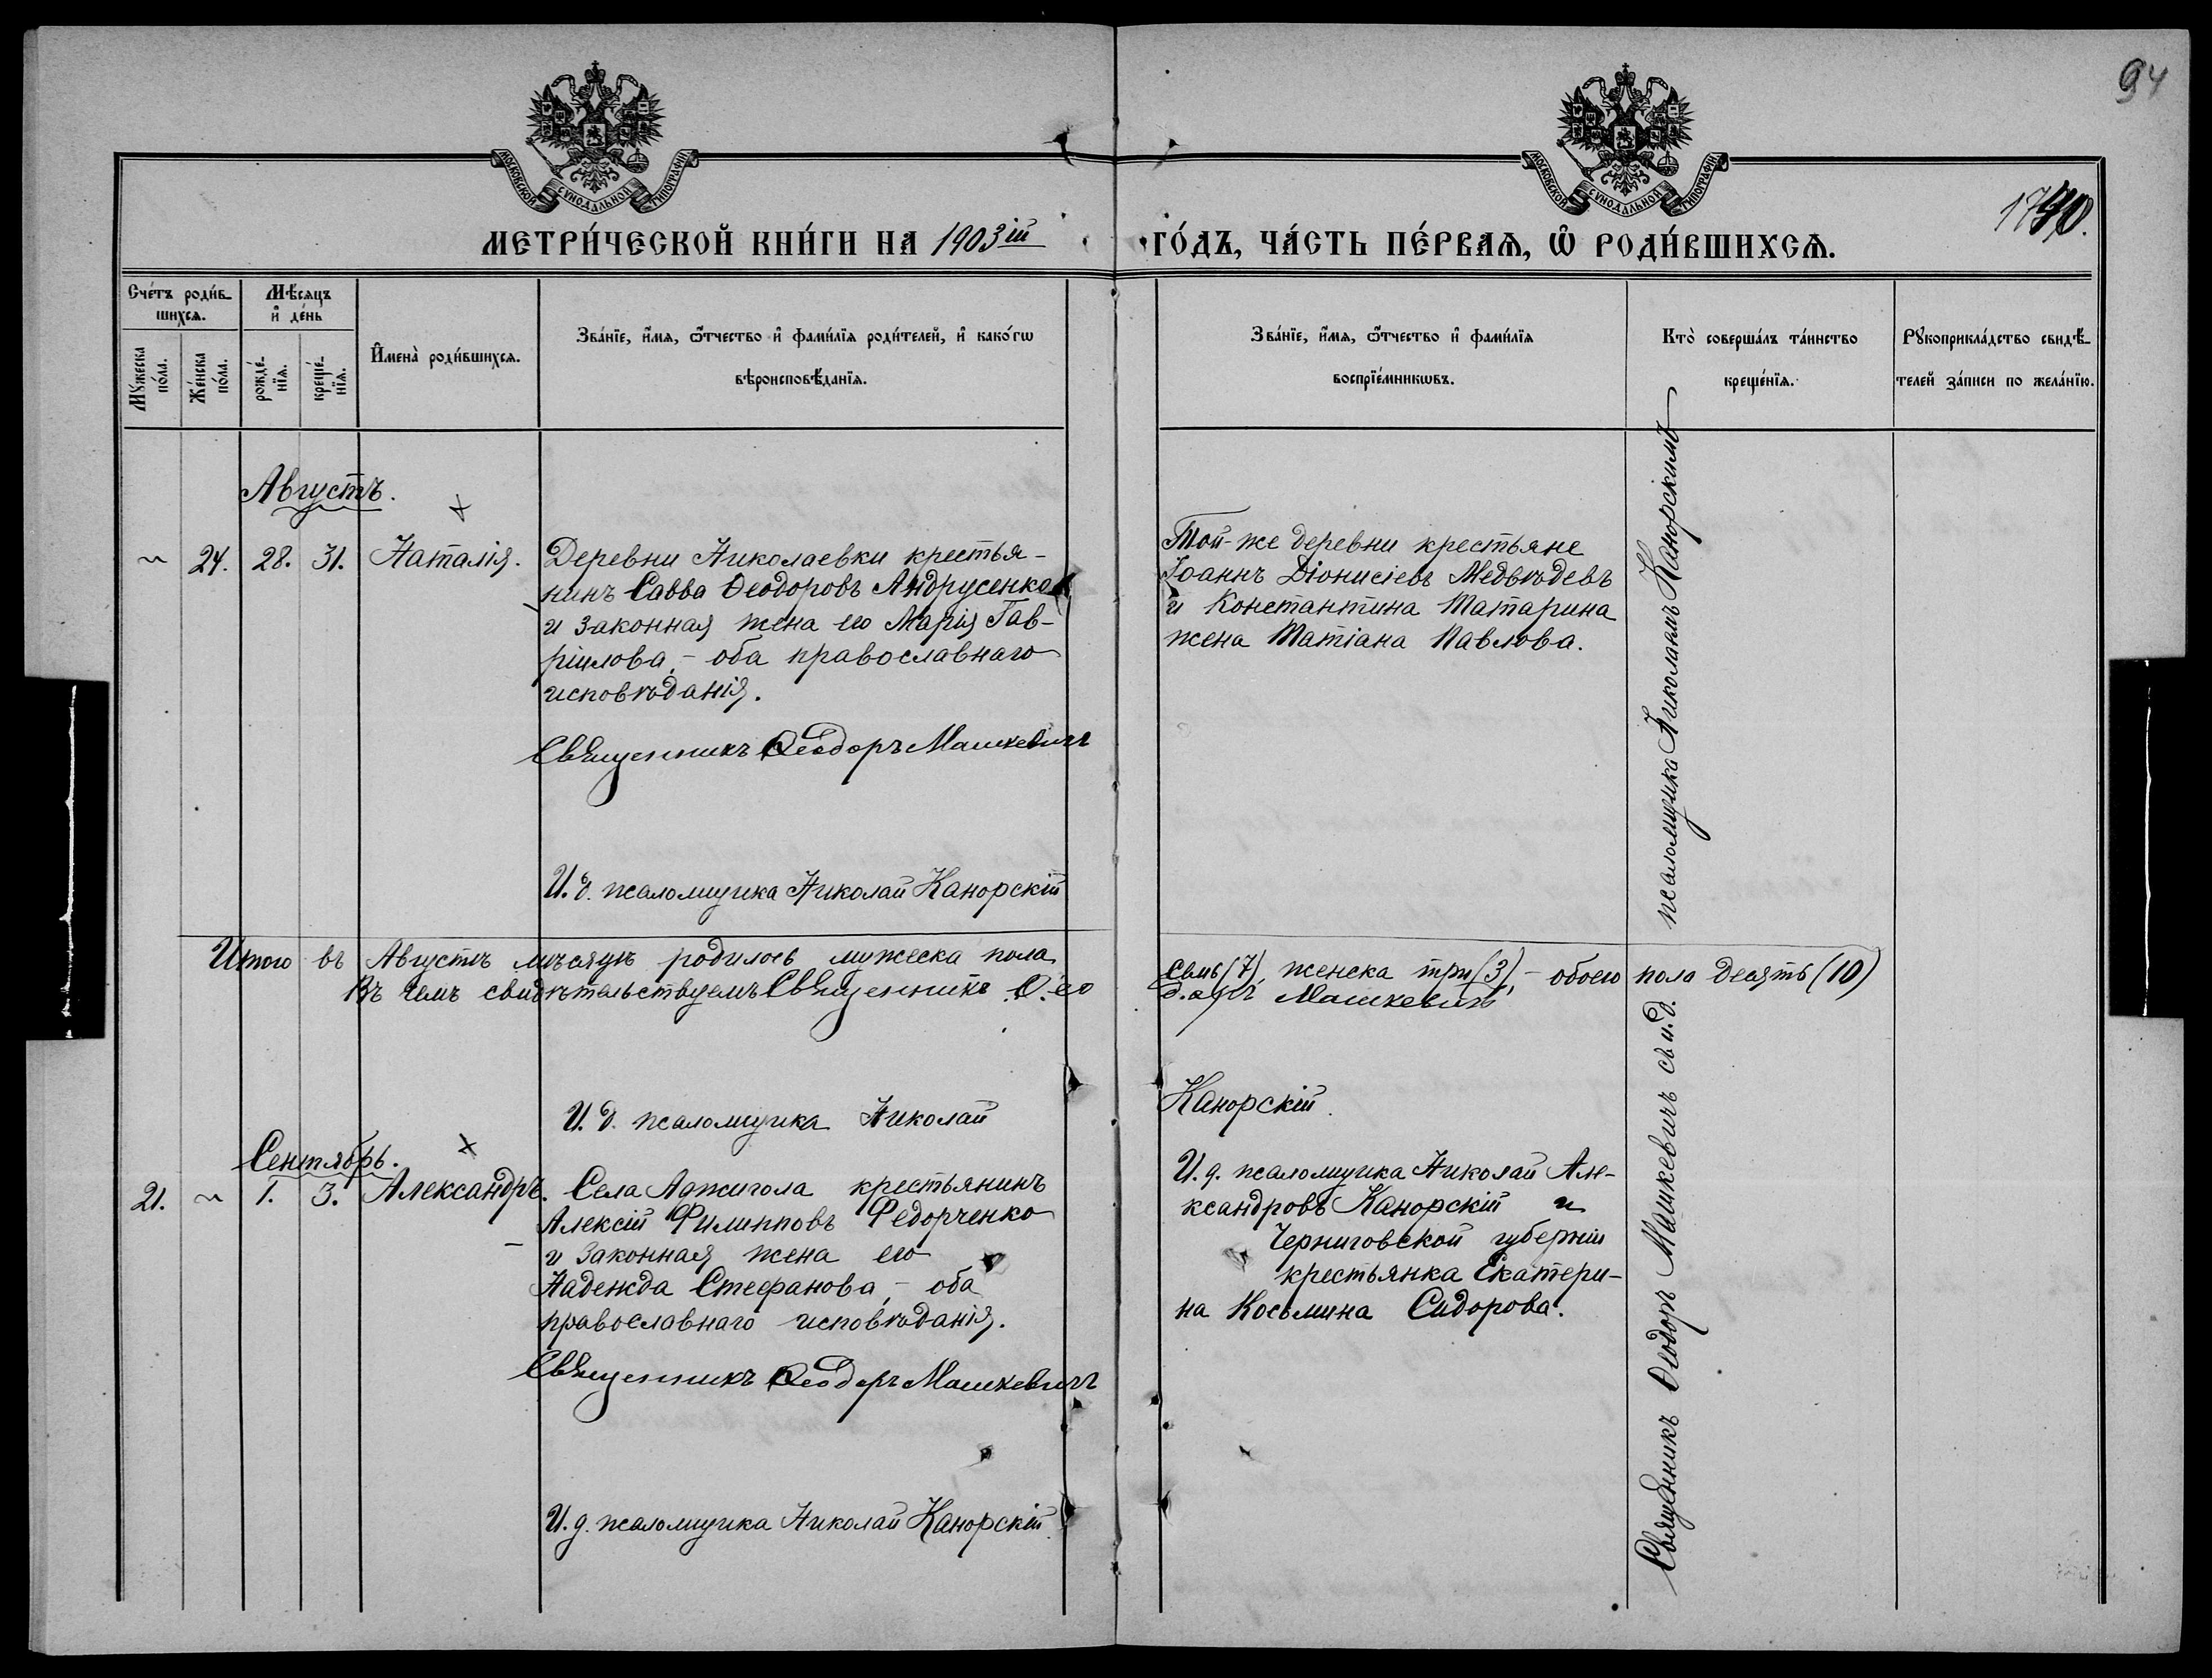 94
МОСКОВСКОЙ СѴНОДАЛЬНОЙ ТИПОГРАФІИ
МОСКОВСКОЙ СѴНОДАЛЬНОЙ ТИПОГРАФІИ
МЕТРИ́ЧЕСКОЙ КНИ́ГИ НА 1903ій
ГО́ДЪ, ЧА́СТЬ ПЕ́РВАѦ, Ѡ҆ РОДИ́ВШИХСѦ.
Сче́тъ роди́в-
шихсѧ.
Мѣ́сѧцъ
и҆ де́нь
Мꙋ́жеска
по́ла.
Же́нска
по́ла.
рожде́-
нїѧ.
креще́-
нїѧ.
И҆мена̀ роди́вшихсѧ.
Зва́нїе, и҆́мѧ, ѻ҆́тчество и҆ фами́лїѧ роди́телей, и҆ како́гѡ
вѣроисповѣ́данїѧ.
Зва́нїе, и҆́мѧ, ѻ҆́тчество и҆ фами́лїѧ
воспрїе́мникѡвъ.
Кто̀ соверша́лъ та́инство
креще́нїѧ.
Рꙋкоприкла́дство свидѣ́-
телей за́писи по жела́нїю.
Августъ.
24. 28. 31. Наталія.
Деревни Николаевки крестья-
нинъ Савва Ѳеодоровъ Андрусенко
и законная жена его Марія Гав-
ріилова, - оба православнаго
исповѣданія.
Священникъ Ѳеодоръ Машкевичъ
И. д. псаломщика Николай Канорскій
Той-же деревни крестьяне
Іоаннъ Діонисіевъ Медвѣдевъ
и Константина Татарина
жена Татіана Павлова.
Итого въ Августѣ мѣсяцѣ родилось мужеска пола
семь (7), женска три (3), - обоего пола десять (10)
Въ чемъ свидѣтельствуемъ Священникъ Ѳео
доръ Машкевичъ
И. д. псаломщика Николай
Канорскій.
Сентябрь.
21. 1. 3. Александръ.
Села Аджигола крестьянинъ
Алексій Филипповъ Федорченко
и законная жена его
Надежда Стефанова, - оба
православнаго исповѣданія.
Священникъ Ѳеодоръ Машкевичъ
И. д. псаломщика Николай Канорскій.
И. д. псаломщика Николай Але-
ксандровъ Канорскій и
Черниговской губерніи
крестьянка Екатери-
на Косьмина Сидорова.
Священникъ Ѳеодоръ Машкевичъ съ и. д. псаломщика Николаемъ Канорскимъ